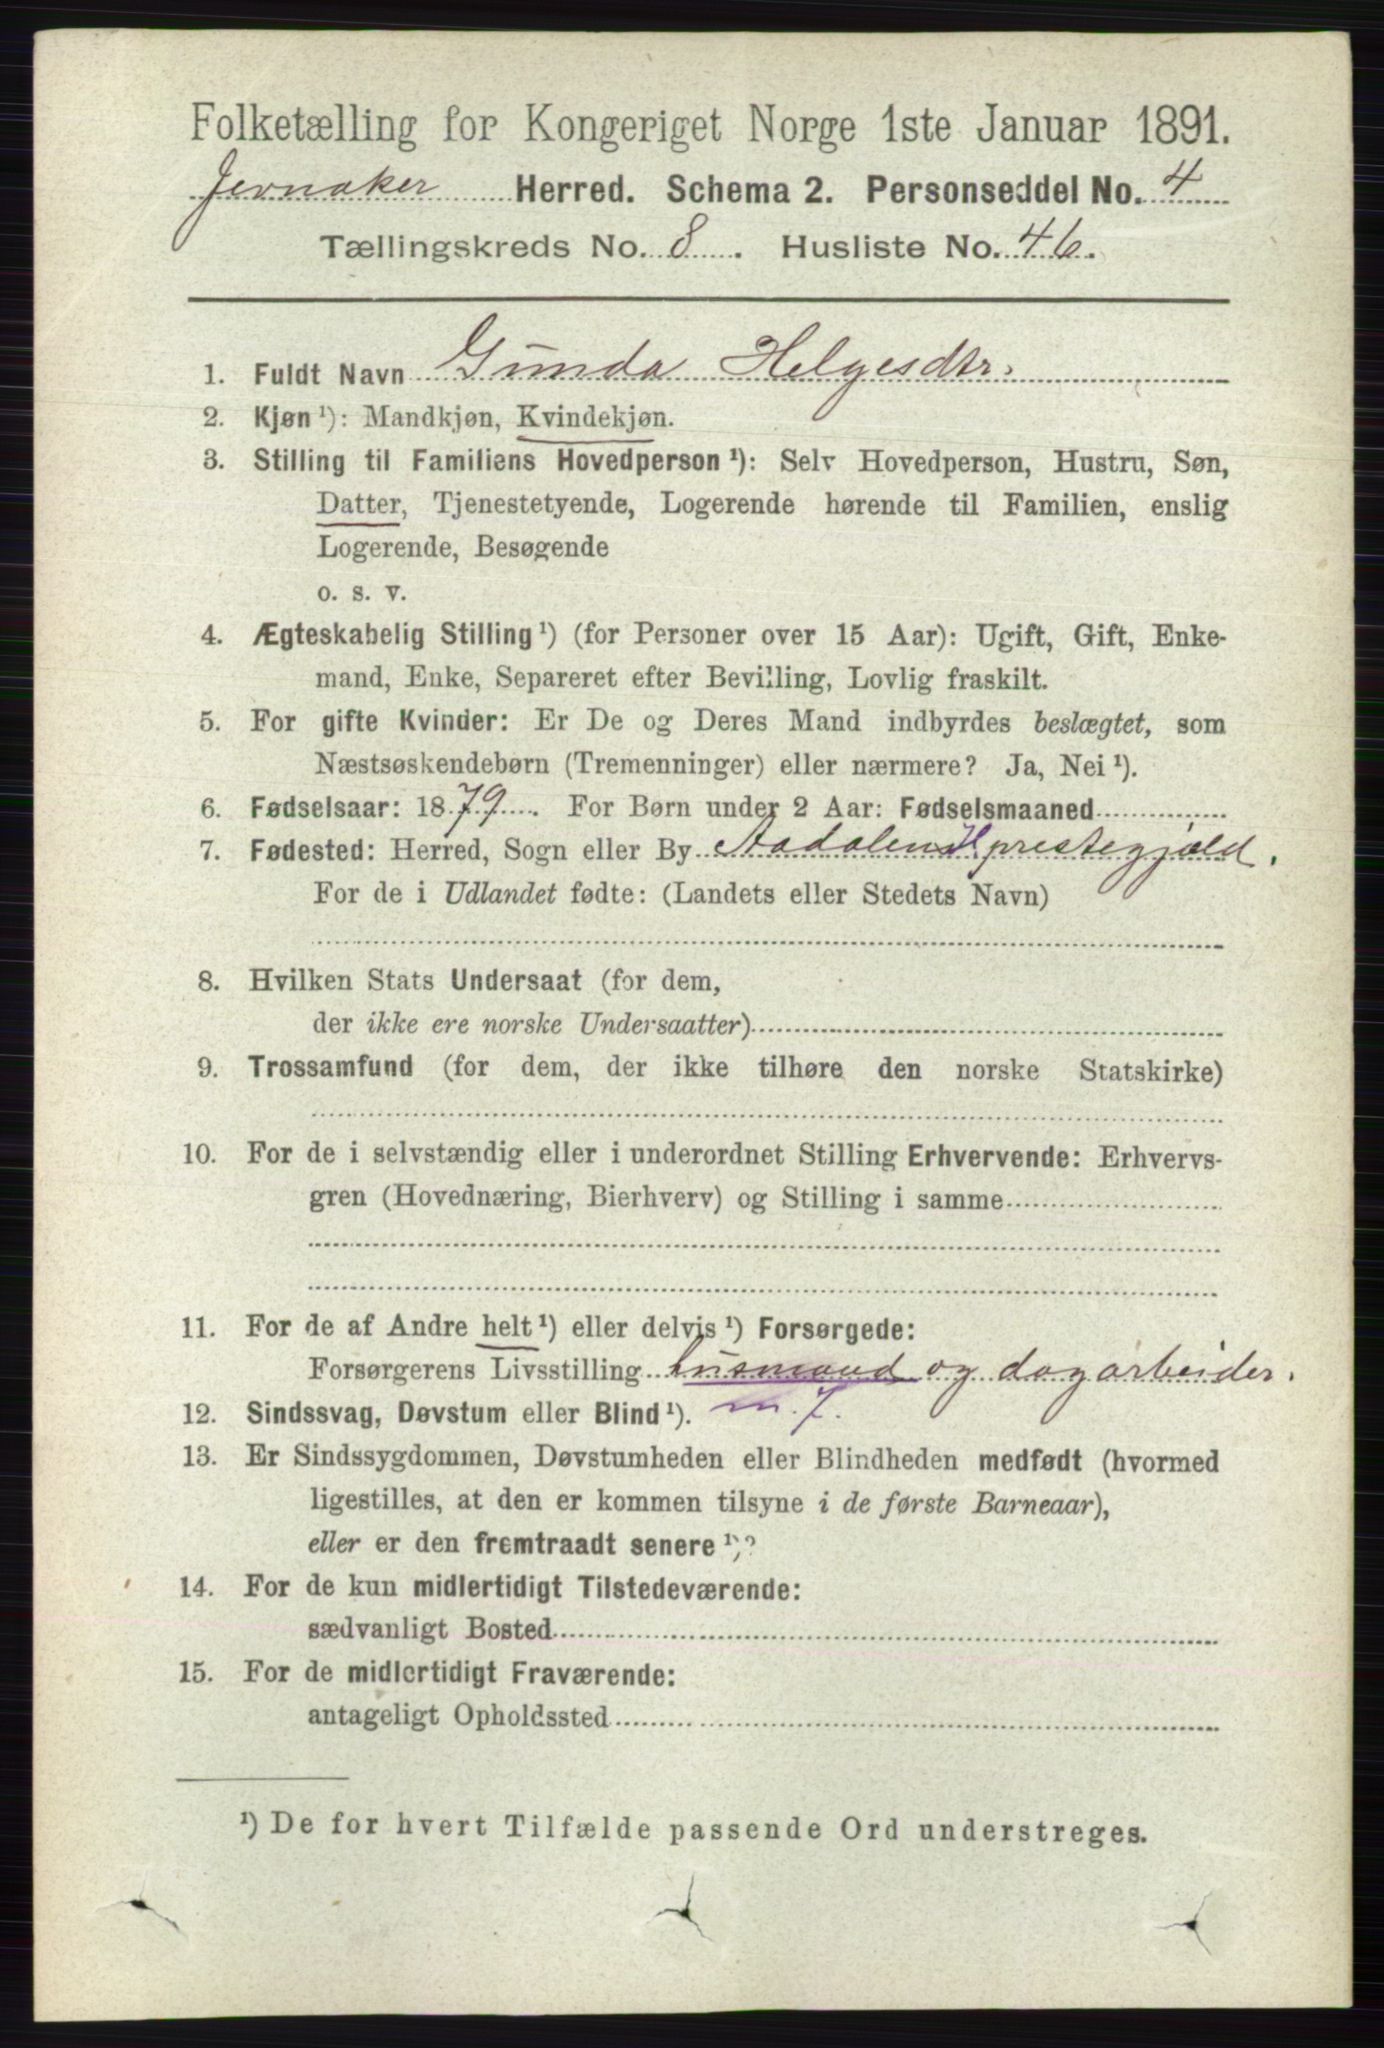 Folketælling for Kongeriget Norge 1ste Januar 1891.
Jevnaker Herred. Schema 2. Personseddel No. 4
Tællingskreds No. 8. Husliste No. 46.
1. Fuldt Navn Gunda Helgesdtr.
2. Kjøn¹): Mandkjøn, Kvindekjøn.
3. Stilling til Familiens Hovedperson¹): Selv Hovedperson, Hustru, Søn,
Datter, Tjenestetyende, Logerende hørende til Familien, enslig
Logerende, Besøgende
o. s. v.
4. Ægteskabelig Stilling¹) (for Personer over 15 Aar): Ugift, Gift, Enke-
mand, Enke, Separeret efter Bevilling, Lovlig fraskilt.
5. For gifte Kvinder: Er De og Deres Mand indbyrdes beslægtet, som
Næstsøskendebørn (Tremenninger) eller nærmere? Ja, Nei¹).
6. Fødselsaar: 1879. For Børn under 2 Aar: Fødselsmaaned
7. Fødested: Herred, Sogn eller By Aadalens H prestegjæld.
For de i Udlandet fødte: (Landets eller Stedets Navn)
8. Hvilken Stats Undersaat (for dem,
der ikke ere norske Undersaatter)
9. Trossamfund (for dem, der ikke tilhøre den norske Statskirke)
10. For de i selvstændig eller i underordnet Stilling Erhvervende: Erhvervs-
gren (Hovednæring, Bierhverv) og Stilling i samme
11. For de af Andre helt¹) eller delvis¹) Forsørgede:
Forsørgerens Livsstilling husmand og dagarbeider.
12. Sindssvag, Døvstum eller Blind¹). m. 7.
13. Er Sindssygdommen, Døvstumheden eller Blindheden medfødt (hvormed
ligestilles, at den er kommen tilsyne i de første Barneaar),
eller er den fremtraadt senere¹)?
14. For de kun midlertidigt Tilstedeværende:
sædvanligt Bosted
15. For de midlertidigt Fraværende:
antageligt Opholdssted
¹) De for hvert Tilfælde passende Ord understreges.